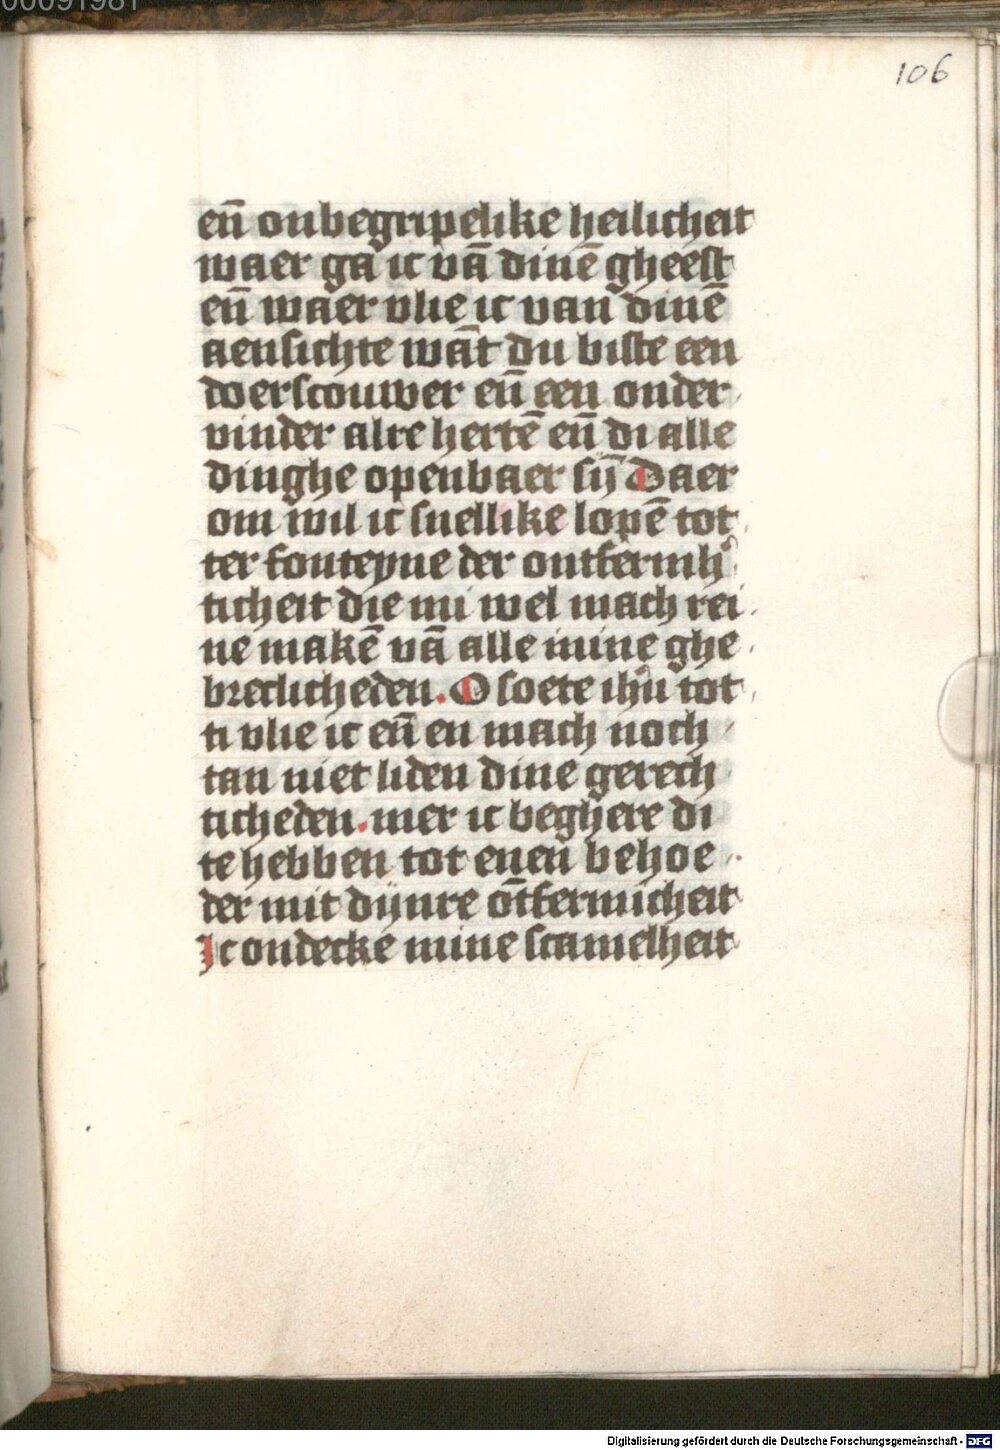 00091981
106
en̄ onbegripelike heilicheit
waer ga ic vā dinē gheest
en̄ waer vlie ic van dinē
aensichte wāt du biste een
doerscouwer en̄ een onder
vinder alre hertē en̄ di alle
dinghe openbaer sij̄ Daer
om wil ic snellike lopē tot
ter fonteyne der ontfermh
ticheit die mi wel mach rei
ne makē vā alle mine ghe
breclicheden. O soete ihū tot
ti vlie ic en̄ en mach noch
tan niet liden dine gerech
ticheden. mer ic beghere di
te hebben tot enen behoe
der mit dijnre ōtfermicheit
Ic ondecke mine scamelheit
Digitalisierung gefördert durch die Deutsche Forschungsgemeinschaft - DFG